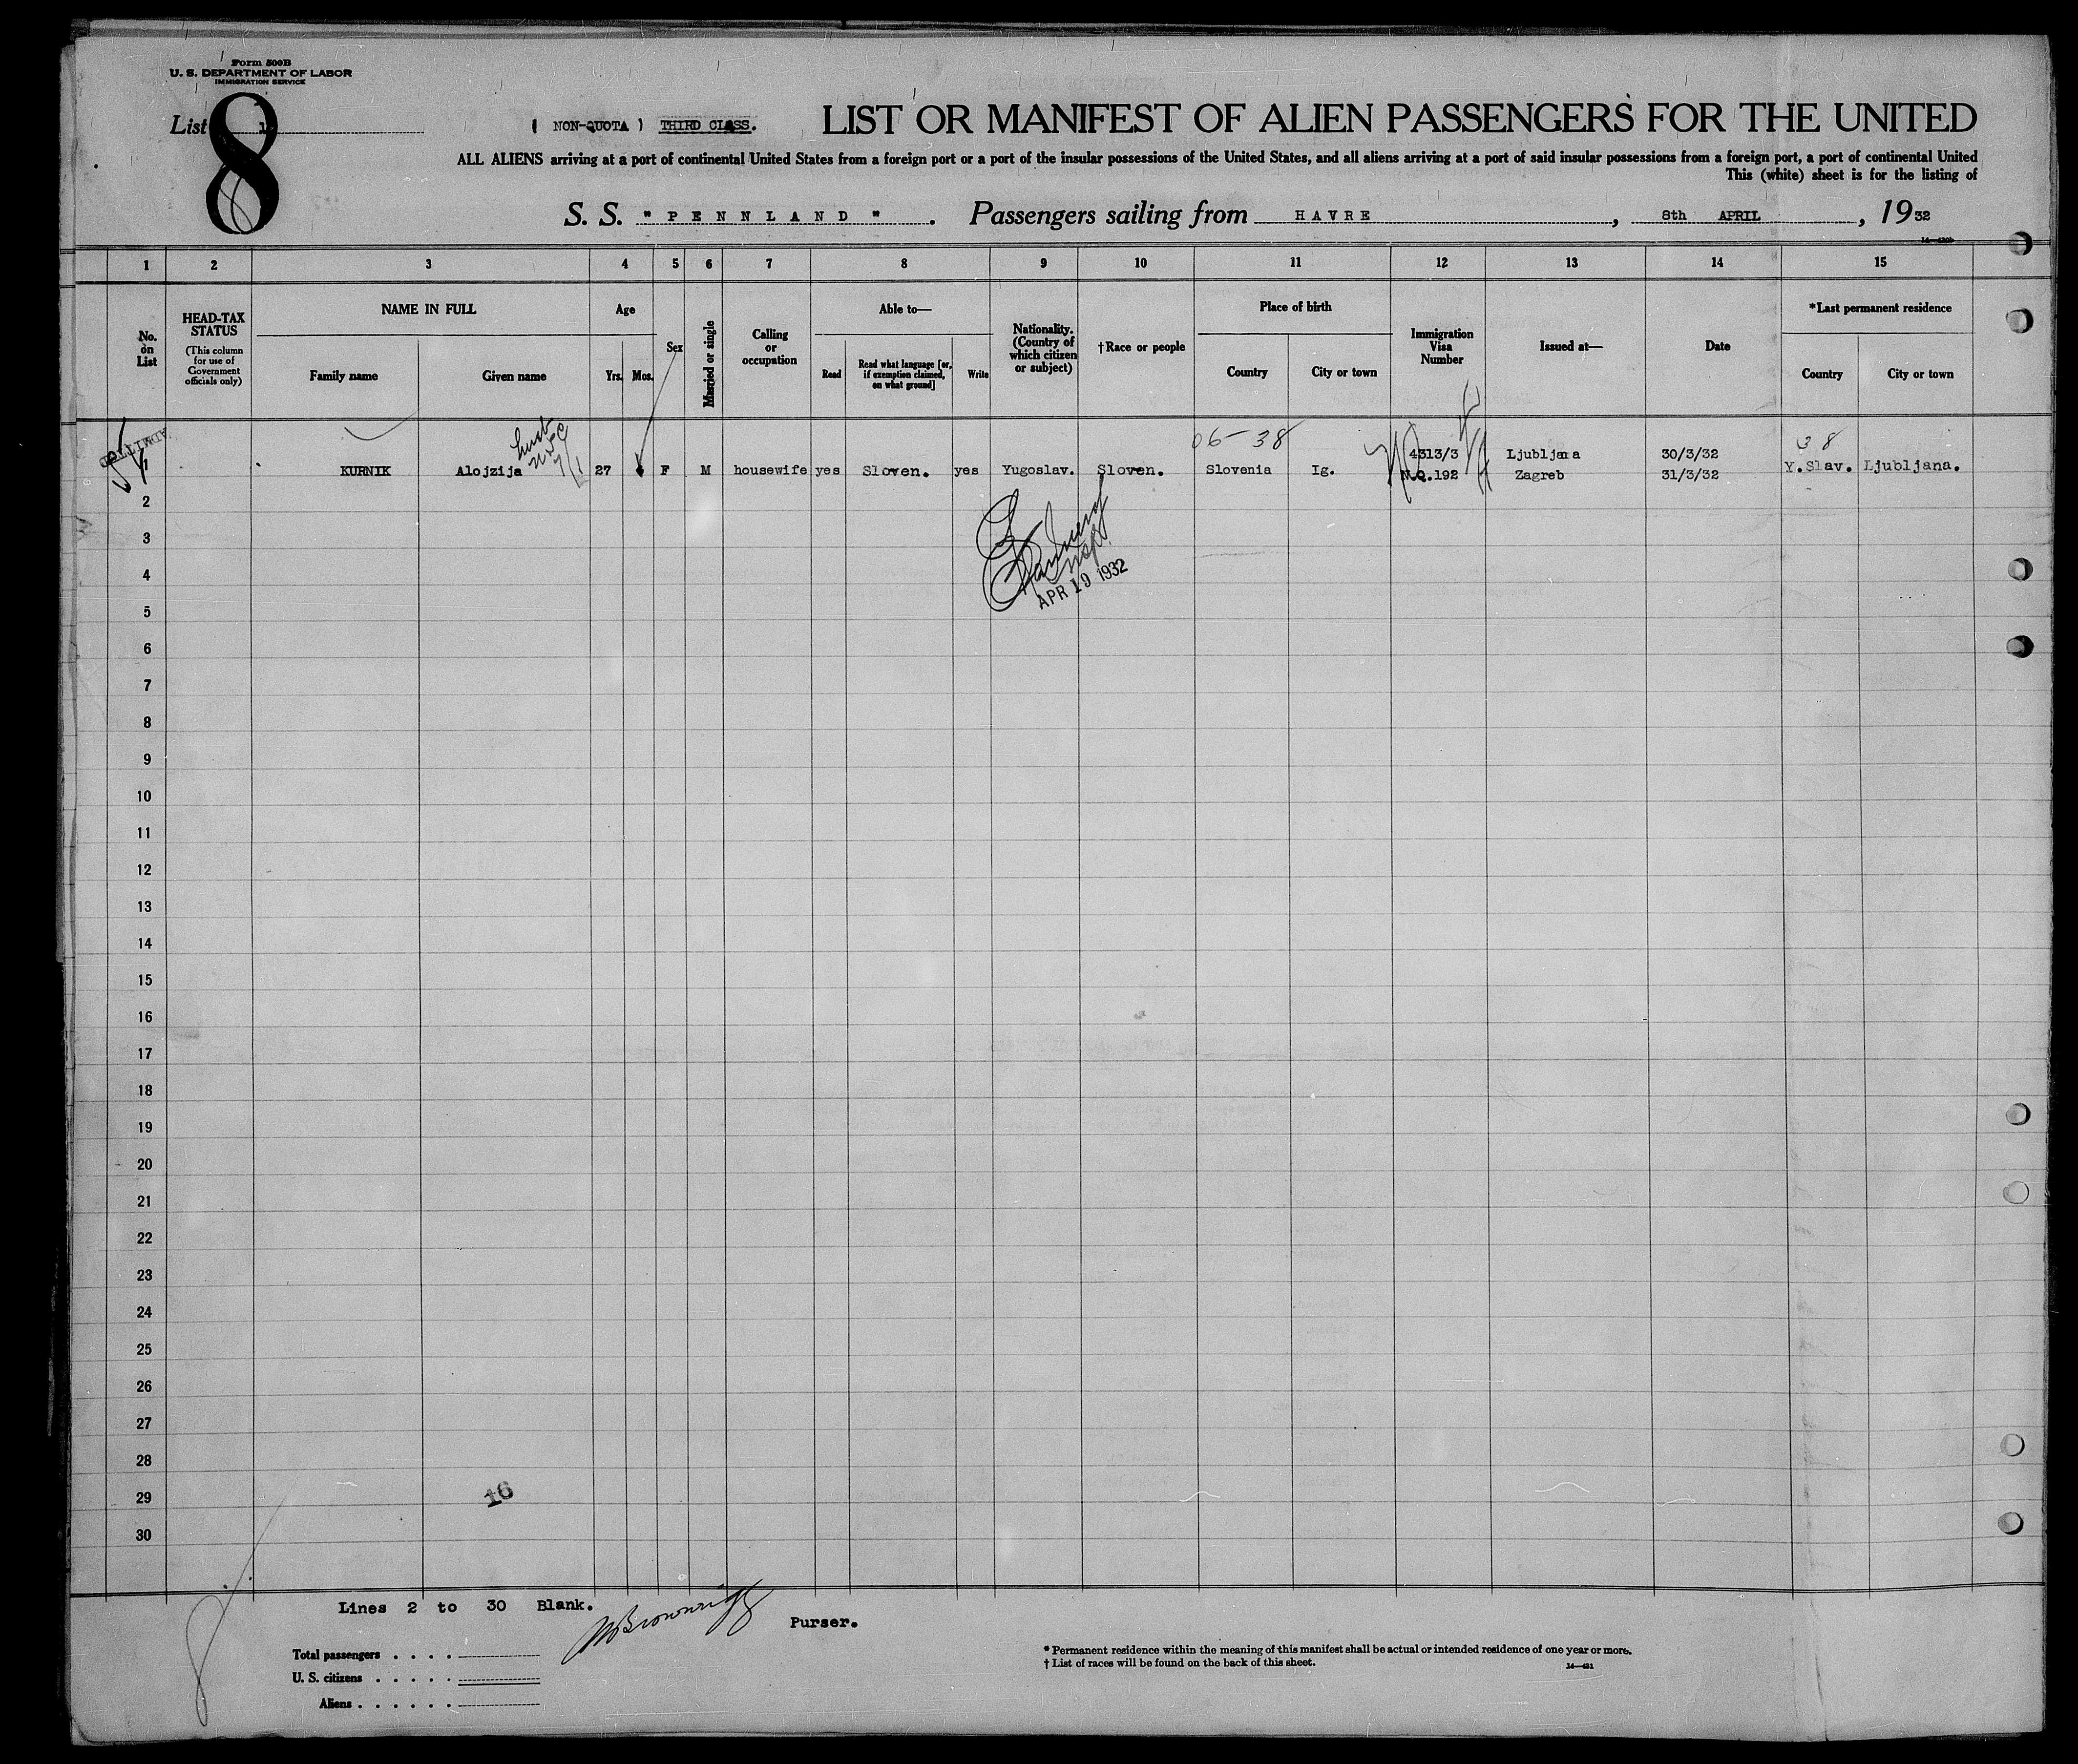 Form 500B
U. S. DEPARTMENT OF LABOR
IMMIGRATION SERVICE
List 1
8
( NON-QUOTA ) THIRD CLASS.
LIST OR MANIFEST OF ALIEN PASSENGERS FOR THE UNITED
ALL ALIENS arriving at a port of continental United States from a foreign port or a port of the insular possessions of the United States, and all aliens arriving at a port of said insular possessions from a foreign port, a port of continental United
This (white) sheet is for the listing of
S. S. "PENNLAND". Passengers sailing from HAVRE, 8th APRIL, 1932
1 2 3 4 5 6 7 8 9 10 11 12 13 14 15
No. on List
HEAD-TAX STATUS
(This column for use of Government officials only)
NAME IN FULL
Family name Given name
Age
Yrs. Mos.
Sex
Married or single
Calling or occupation
Able to—
Read Read what language [or, if exemption claimed, on what ground] Write
Nationality. (Country of which citizen or subject)
†Race or people
Place of birth
Country City or town
Immigration Visa Number
Issued at—
Date
*Last permanent residence
Country City or town
ADMITTED
06-38 38
4313/3 Ljubljana 30/3/32
1 KURNIK Alojzija 27 F M housewife yes Sloven. yes Yugoslav. Sloven. Slovenia Ig. N.Q.192 Zagreb 31/3/32 Y.Slav. Ljubljana.
2
3
4
APR 19 1932
5
6
7
8
9
10
11
12
13
14
15
16
17
18
19
20
21
22
23
24
25
26
27
28
29
16
30
Lines 2 to 30 Blank.
Purser.
Total passengers . . . .
U. S. citizens . . . . .
Aliens . . . . . .
* Permanent residence within the meaning of this manifest shall be actual or intended residence of one year or more.
† List of races will be found on the back of this sheet.
14—421